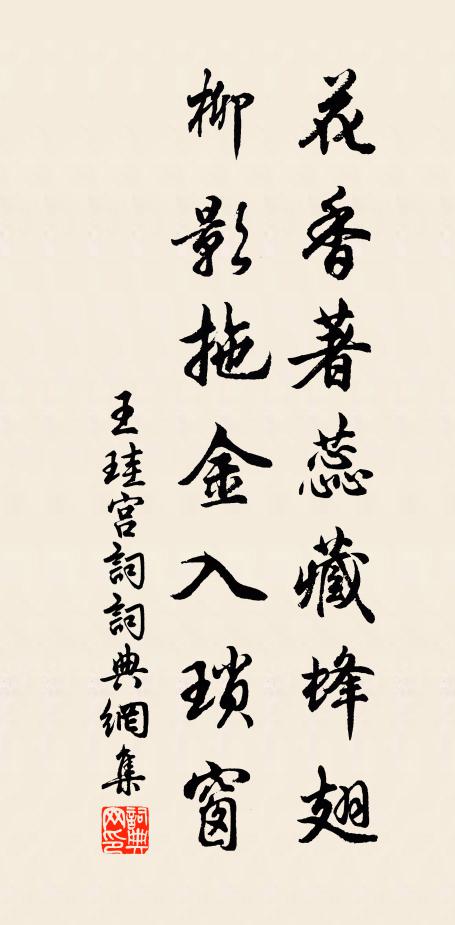 花香著蕊藏蜂翅
柳影拖金入瑣窗
王珪宮詞詞典網集
詞典网印